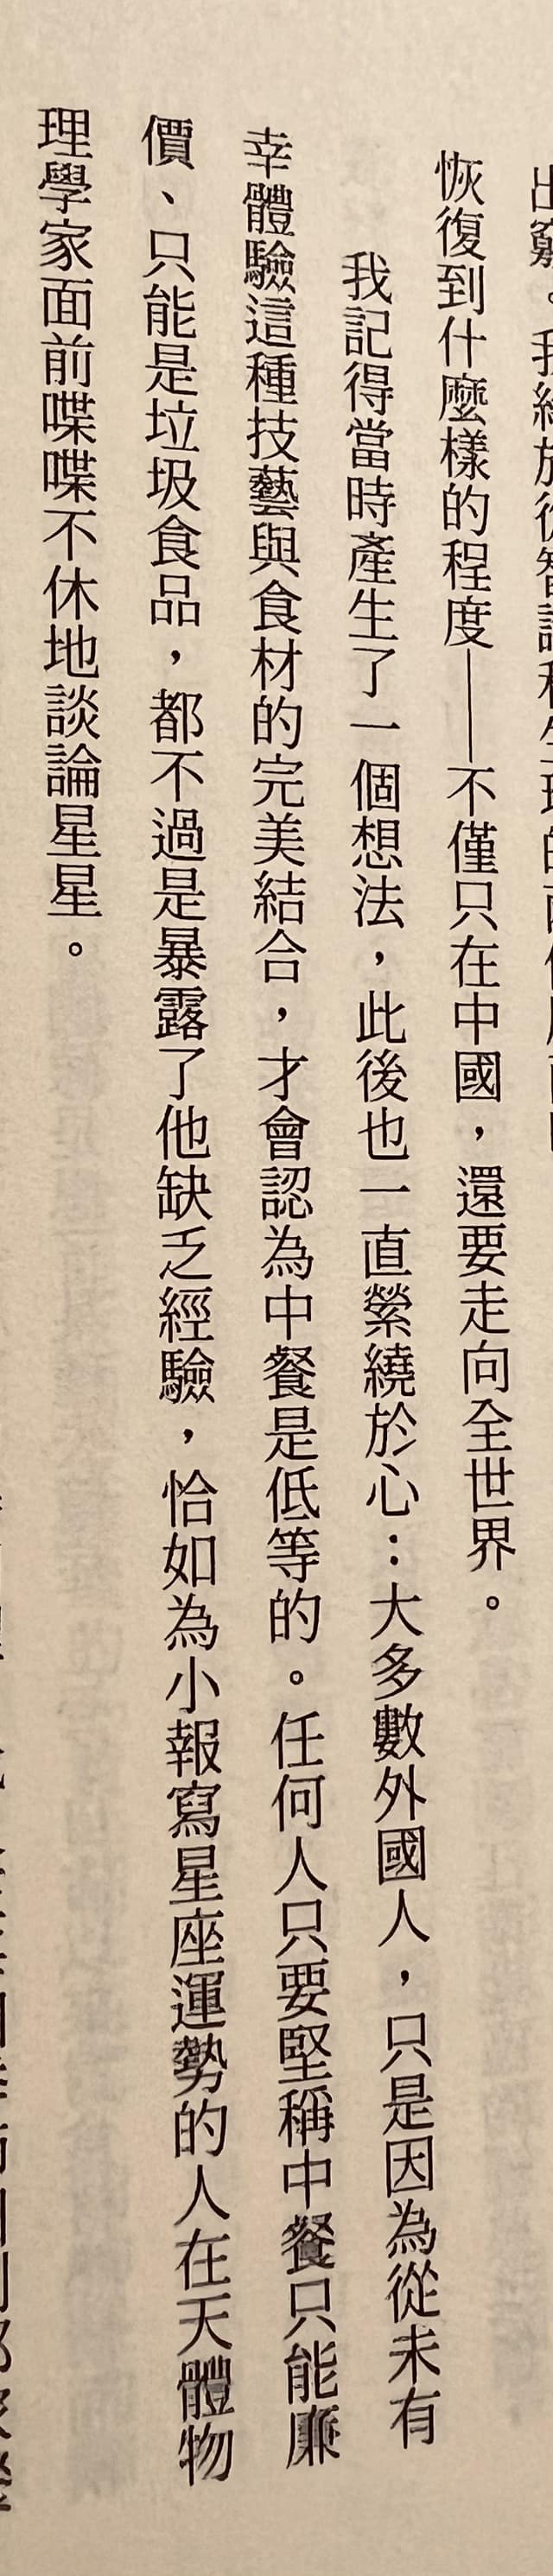 出窮。我
恢復到什麼樣的程度——不僅只在中國，還要走向全世界。
我記得當時產生了一個想法，此後也一直縈繞於心：大多數外國人，只是因為從未有
幸體驗這種技藝與食材的完美結合，才會認為中餐是低等的。任何人只要堅稱中餐只能廉
價、只能是垃圾食品，都不過是暴露了他缺乏經驗，恰如為小報寫星座運勢的人在天體物
理學家面前喋喋不休地談論星星。